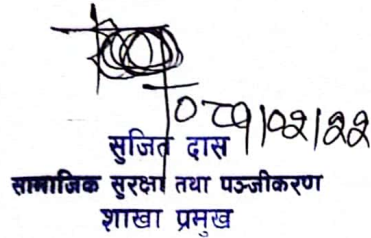 ०८१/०२/२२
सुजित दास
सामाजिक सुरक्षा तथा पञ्जीकरण
शाखा प्रमुख